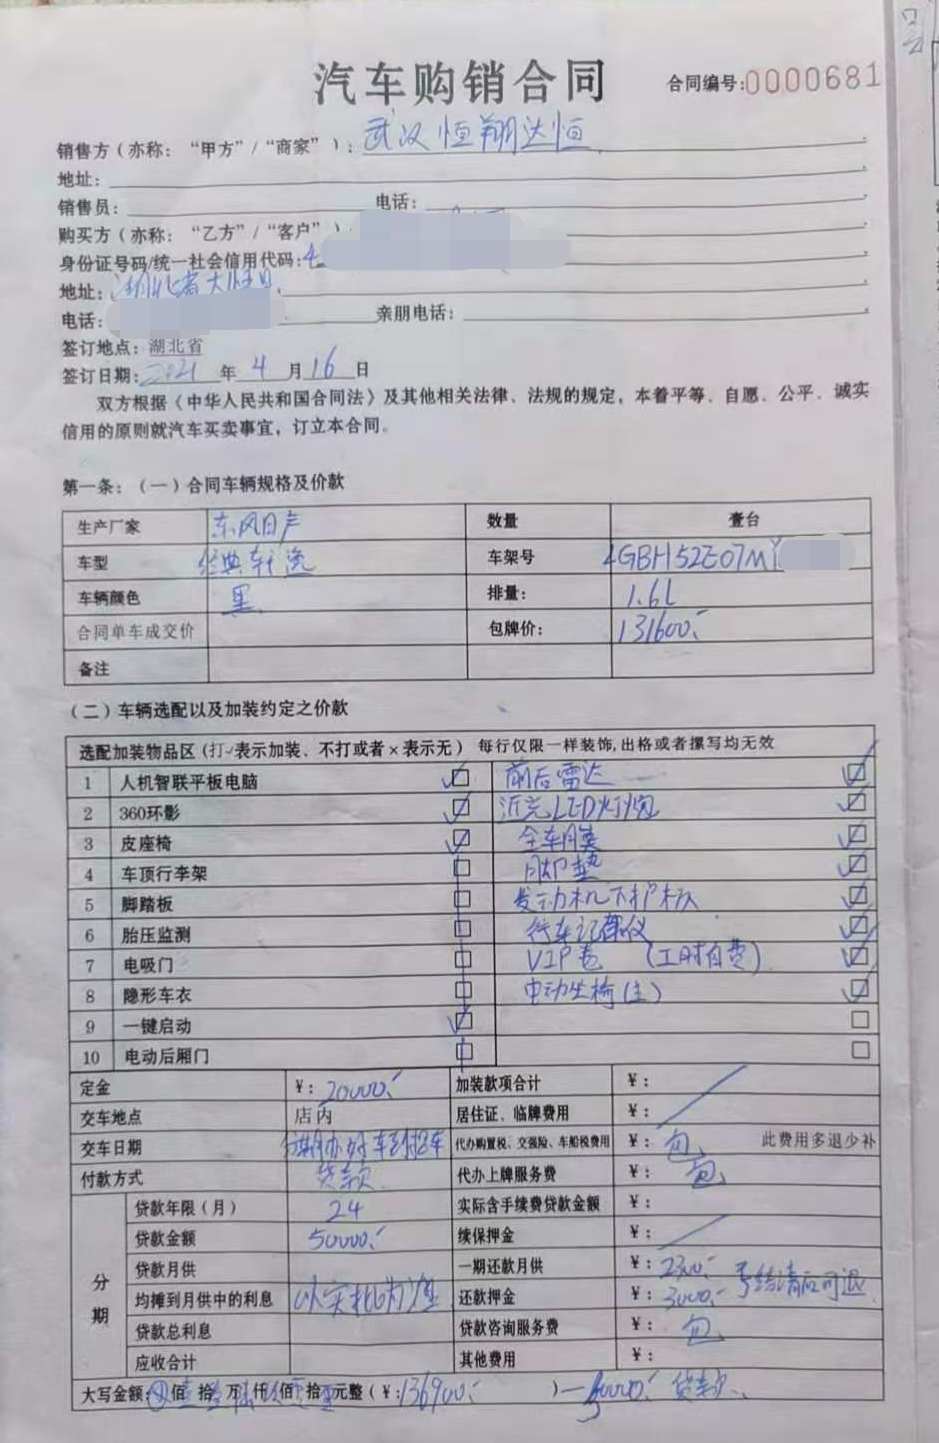 汽车购销合同
合同编号:0000681
销售方(亦称: “甲方”/“商家”): 武汉恒翔达恒
地址:
销售员: 电话:
购买方(亦称: “乙方”/“客户”)
身份证号码/统一社会信用代码:4
地址: 湖北省大悟县
电话: 亲朋电话:
签订地点: 湖北省
签订日期: 2021 年 4 月 16 日
双方根据《中华人民共和国合同法》及其他相关法律、法规的规定, 本着平等、自愿、公平、诚实
信用的原则就汽车买卖事宜, 订立本合同。
第一条: (一)合同车辆规格及价款
生产厂家 东风日产 数量 壹台
车型 经典轩逸 车架号 LGBH52E07MY
车辆颜色 黑 排量: 1.6L
合同单车成交价 包牌价: 131600.
备注
(二)车辆选配以及加装约定之价款
选配加装物品区(打✓表示加装、不打或者×表示无) 每行仅限一样装饰,出格或者撰写均无效
1 人机智联平板电脑 前后雷达
2 360环影 近光LED灯炮
3 皮座椅 全车膜
4 车顶行李架 脚垫
5 脚踏板 发动机下护板
6 胎压监测 行车记录仪
7 电吸门 VIP卷 (工时自费)
8 隐形车衣 电动坐椅(主)
9 一键启动
10 电动后厢门
定金 ¥: 20000. 加装款项合计 ¥:
交车地点 店内 居住证、临牌费用 ¥:
交车日期 代办购置税、交强险、车船税费用 ¥: 包 此费用多退少补
付款方式 贷款 代办上牌服务费 包
分期
贷款年限(月) 24 实际含手续费贷款金额 ¥:
贷款金额 50000. 续保押金 ¥:
贷款月供 一期还款月供 ¥: 2300.
均摊到月供中的利息 以实批为准 还款押金 ¥: 3000. 结清后可退
贷款总利息 贷款咨询服务费 ¥: 包
应收合计 其他费用 ¥:
大写金额: 佰 壹 拾 万 仟 佰 拾 元整 (¥:136900. ) 50000. 贷款